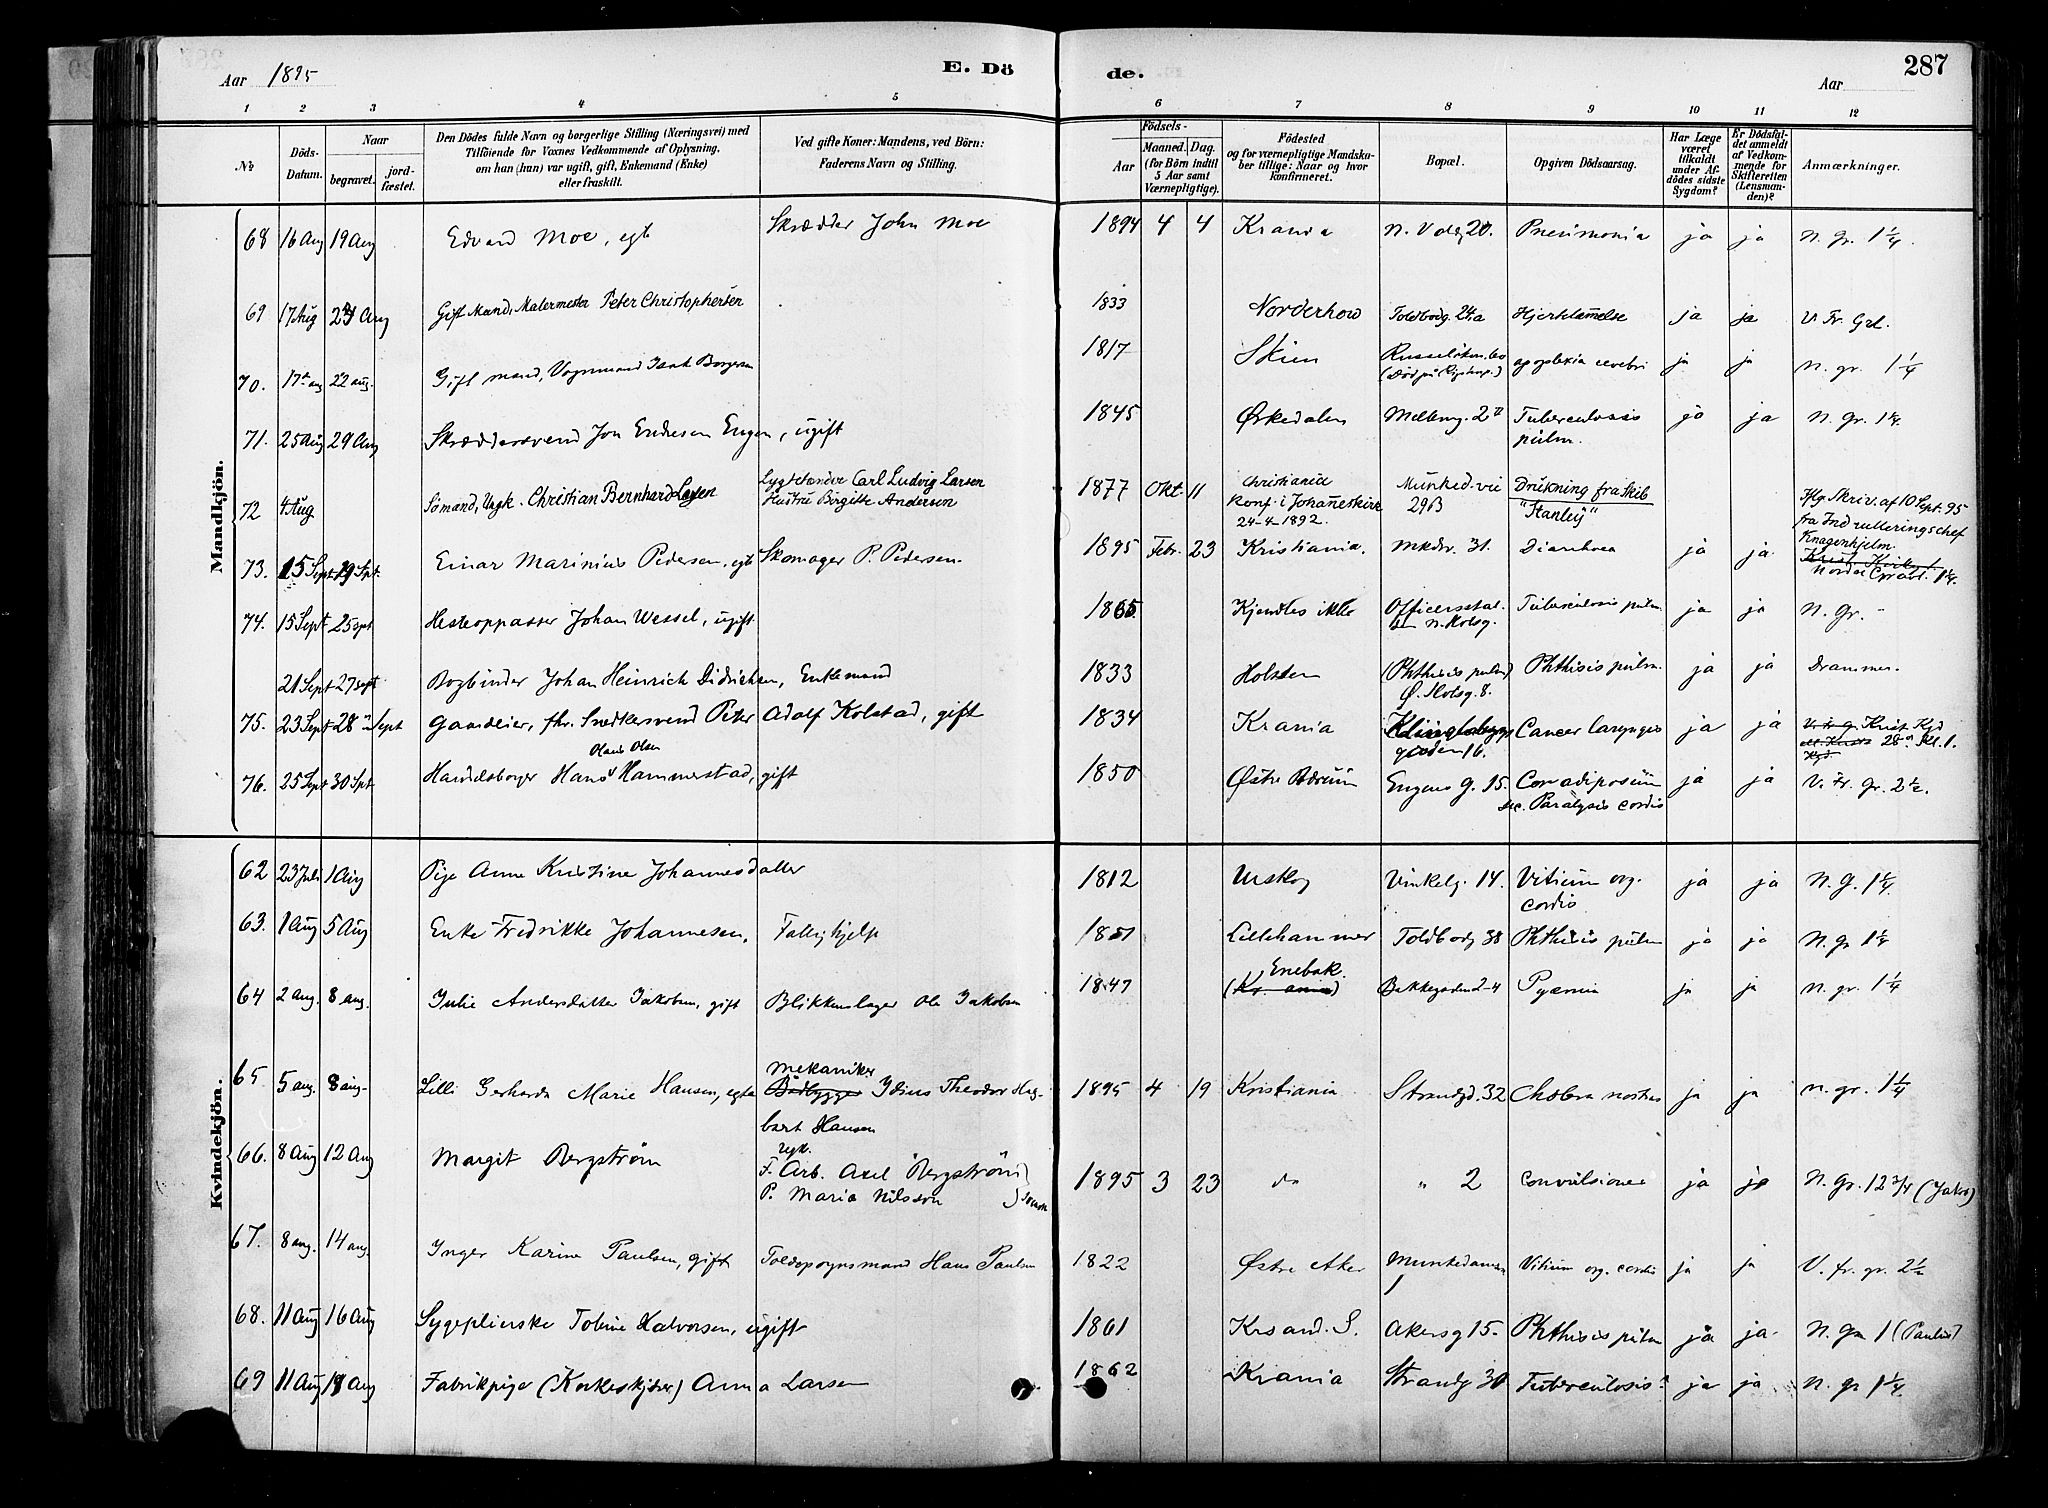 Aar 1895
E. Dö
de.
Aar
287
1 2 3 4 5 6 7 8 9 10 11 12
No
Döds-Datum.
Naar
begravet.
jord-fæstet.
Den Dödes fulde Navn og borgerlige Stilling (Næringsvei) med
Tilföiende for Voxnes Vedkommende af Oplysning,
om han (hun) var ugift, gift, Enkemand (Enke)
eller fraskilt.
Ved gifte Koner: Mandens, ved Börn:
Faderens Navn og Stilling.
Födsels-
Aar
Maaned. Dag.
(for Börn indtil
5 Aar samt
Værnepligtige).
Födested
og for værnepligtige Mandska-
ber tillige: Naar og hvor
konfirmeret.
Bopæl.
Opgiven Dödsaarsag.
Har Læge
været
tilkaldt
under Af-
dödes sidste
Sygdom?
Er Dödsfal-
det anmeldt
af Vedkom-
mende for
Skifteretten
(Lensman-
den)?
Anmærkninger.
Mandkjön.
68 16 Aug 19 Aug Edvard Moe, egte Skrædder John Moe 1894 4 4 Krania N. Volzg 20. Pneumonia ja ja N. Gr. 1 1/4.
69 17 Aug 24 Aug Gift Mand, Malermester Peter Christophersen 1833 Norderhov Toldbodg. 24a Hjertelamelse ja ja V. Fr. Grl.
70. 17 aug 22 aug. Gift mand, Vognmand Isak Borgersen 1817 Skien (Död på Rigshosp.) apoplexia cerebri ja ja N. gr. 1 1/4
71. 25 Aug 29 Aug Skræddersvend Jon Endresen Engen, ugift 1845 Ørkedalen Mellemg. 2 Tuberculosis
pulm. ja ja N. Gr. 1 1/4.
72 4 Aug Sömand, Ungk. Christian Bernhard Larsen Lygtetænder Carl Ludvig Larsen
Hustru Birgitte Anderson 1877 Okt. 11 Christiania
Konf. i Johanneskirk
24-4-1892. Munked.vei
29B Drukning fra Skib
"Stanley" Iflg. Skriv. af 10 Sept. 95
fra Indrulleringschef
Knagenhjelm.
73. 15 Sept. 19 Spt. Einar Marinius Pedersen, egte Skomager P. Pedersen 1895 Febr. 23 Kristiania. Mkdv. 31. Diarrhoea ja ja Nordre Gravl. 1 1/4.
74. 15 Sept 25 Spt Hesteoppasser Johan Wessel, ugift 1865 Kjendtes ikke Officersstal-
len n. Slotsg. Tuberculosis pulm. ja ja N. Gr.
21 Sept 27 sept Bogbinder Johan Heinrich Didrichsen, Enkemand 1833 Holsten (Phthisis pulm)
Ø. Slotsg. 8. Phthisis pulm. ja ja Drammen.
75. 23 Sept 28 Sept Gaardeier, fhv. Snedkersvend Peter Adolf Kolstad, gift 1834 Krania Klingenberg
gaden 16. Cancer laryngis ja ja Krist. Kgd
Kl. 1.
76. 25 Sept 30 Spt Handelsborger Hans Olaus Olsen Hammerstad, gift 1850 Østre Bærum Engens G. 15. Cor adiposum
sec. Paralysis cordis ja ja V. Fr. Gr. 2 1/2.
Kvindekjön.
62 23 Juli 1 Aug Pige Anne Kristine Johannesdatter 1812 Urskog Vinkelg. 14. Vitium org.
cordis ja ja N. G. 1 1/4.
63. 1 Aug 5 Aug Enke Fredrikke Johannesen, Fattighjelp 1851 Lillehammer Toldbodg 38 Phthisis pulm ja ja N. gr 1 1/4
64 2 aug. 8 aug. Julie Andersdatter Jakobsen, gift Blikkenslager Ole Jakobsen 1847 Enebak.
(Kr. ania) Bakkegaden 2-4 Pyæmia ja ja N. gr. 1 1/4
65 5 aug. 8 aug. Lilli Gerharda Marie Hansen, egte Mekaniker
Theodor Hag-
bart Hansen 1895 4 19 Kristiania Strandgd. 32 Cholera nostras ja ja n. gr. 1 1/4
66. 8 Aug 12 Aug Margit Bergström ugk.
F. Arb. Axel Bergström
P. Maria Nilsson 1895 3 23 do " 2 Convulsiones ja ja N. Gr. 12 3/4 (Jakob)
67. 8 aug. 14 aug. Inger Karine Paulsen, gift Toldopsynsmand Hans Paulsen 1822 Østre Aker Munkedamsv
1 Vitium org. cordis ja ja V. fr. gr. 2 1/2
68. 11 Aug 16 Aug Sygepleierske Toline Halvorsen, ugift 1861 Krsand. S. Akersg 15. Phthisis pulm ja ja N. Gr 1 (Paulus)
69 11 Aug 14 Aug Fabrikpige (Korkeskjærer) Anna Larsen 1862 Krania Strandg 30 Tuberculosis? ja ja N. gr 1 1/4.